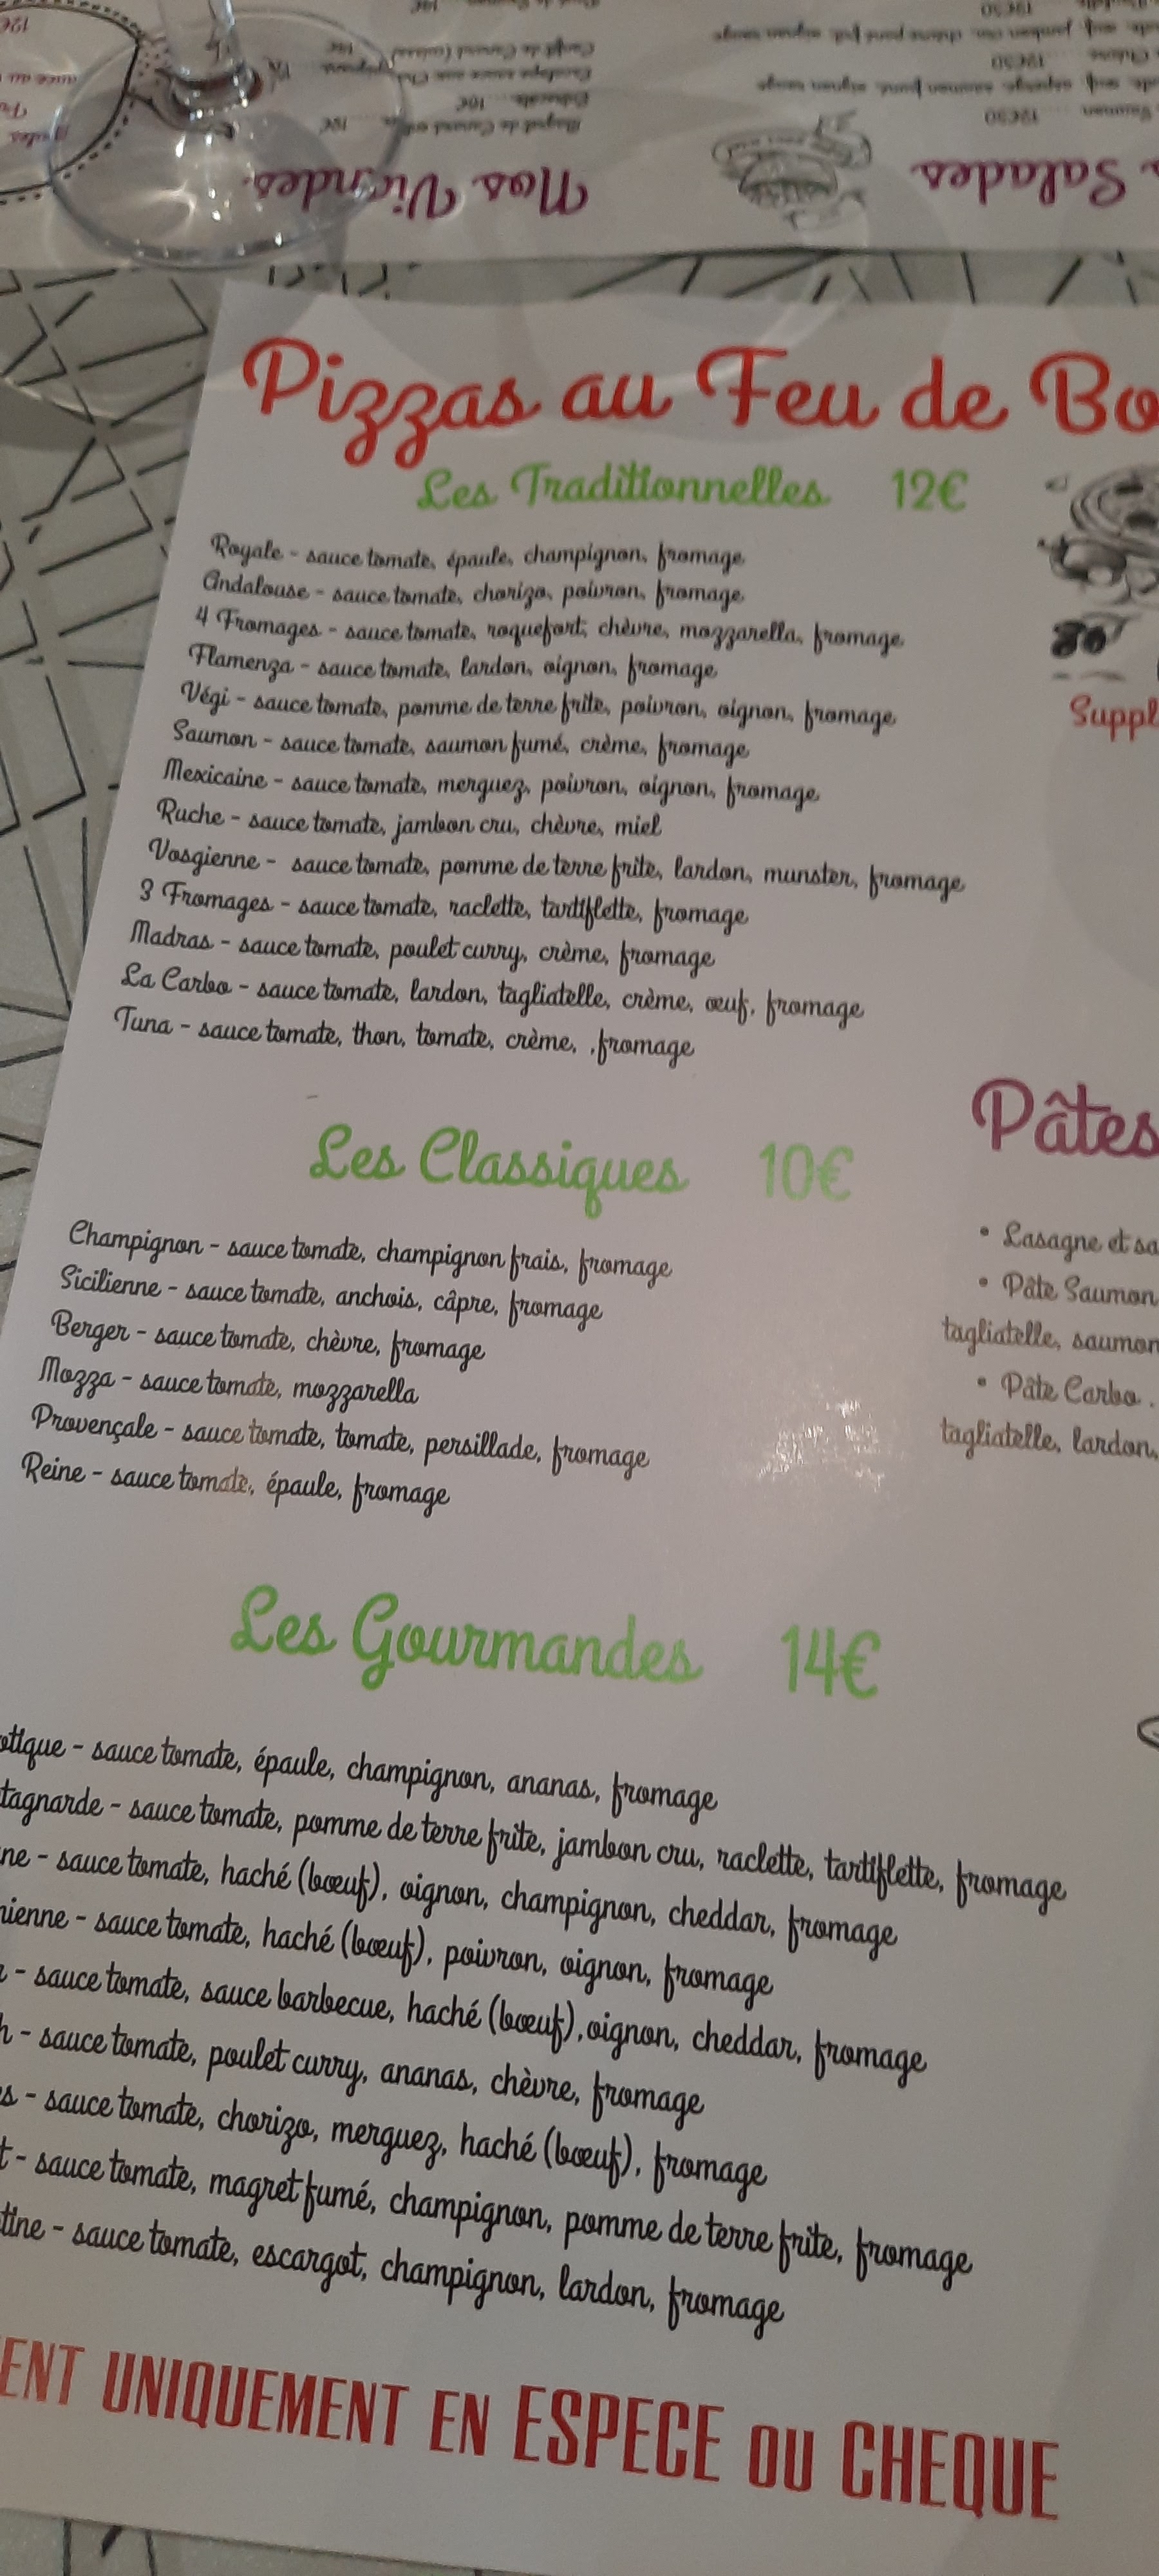 Mos Viandes
Salades
12€50
12€50
Pizzas au Feu de Bo
Les Traditionnelles 12€
Royale - sauce tomate, épaule, champignon, fromage
Andalouse - sauce tomate, chorizo, poivron, fromage
4 Fromages - sauce tomate, roquefort, chèvre, mozzarella, fromage
Flamenza - sauce tomate, lardon, oignon, fromage
Végi - sauce tomate, pomme de terre frite, poivron, oignon, fromage
Saumon - sauce tomate, saumon fumé, crème, fromage
Mexicaine - sauce tomate, merguez, poivron, oignon, fromage
Ruche - sauce tomate, jambon cru, chèvre, miel
Vosgienne - sauce tomate, pomme de terre frite, lardon, munster, fromage
3 Fromages - sauce tomate, raclette, tartiflette, fromage
Madras - sauce tomate, poulet curry, crème, fromage
La Carbo - sauce tomate, lardon, tagliatelle, crème, œuf, fromage
Tuna - sauce tomate, thon, tomate, crème, .fromage
Suppl
Les Classiques 10€
Champignon - sauce tomate, champignon frais, fromage
Sicilienne - sauce tomate, anchois, câpre, fromage
Berger - sauce tomate, chèvre, fromage
Mozza - sauce tomate, mozzarella
Provençale - sauce tomate, tomate, persillade, fromage
Reine - sauce tomate, épaule, fromage
Pâtes
• Lasagne et sa
• Pâte Saumon
tagliatelle, saumon
• Pâte Carbo .
tagliatelle, lardon,
Les Gourmandes 14€
otique - sauce tomate, épaule, champignon, ananas, fromage
tagnarde - sauce tomate, pomme de terre frite, jambon cru, raclette, tartiflette, fromage
ne - sauce tomate, haché (bœuf), oignon, champignon, cheddar, fromage
nienne - sauce tomate, haché (bœuf), poivron, oignon, fromage
- sauce tomate, sauce barbecue, haché (bœuf),oignon, cheddar, fromage
h - sauce tomate, poulet curry, ananas, chèvre, fromage
s - sauce tomate, chorizo, merguez, haché (bœuf), fromage
t - sauce tomate, magret fumé, champignon, pomme de terre frite, fromage
tine - sauce tomate, escargot, champignon, lardon, fromage
ENT UNIQUEMENT EN ESPECE OU CHEQUE